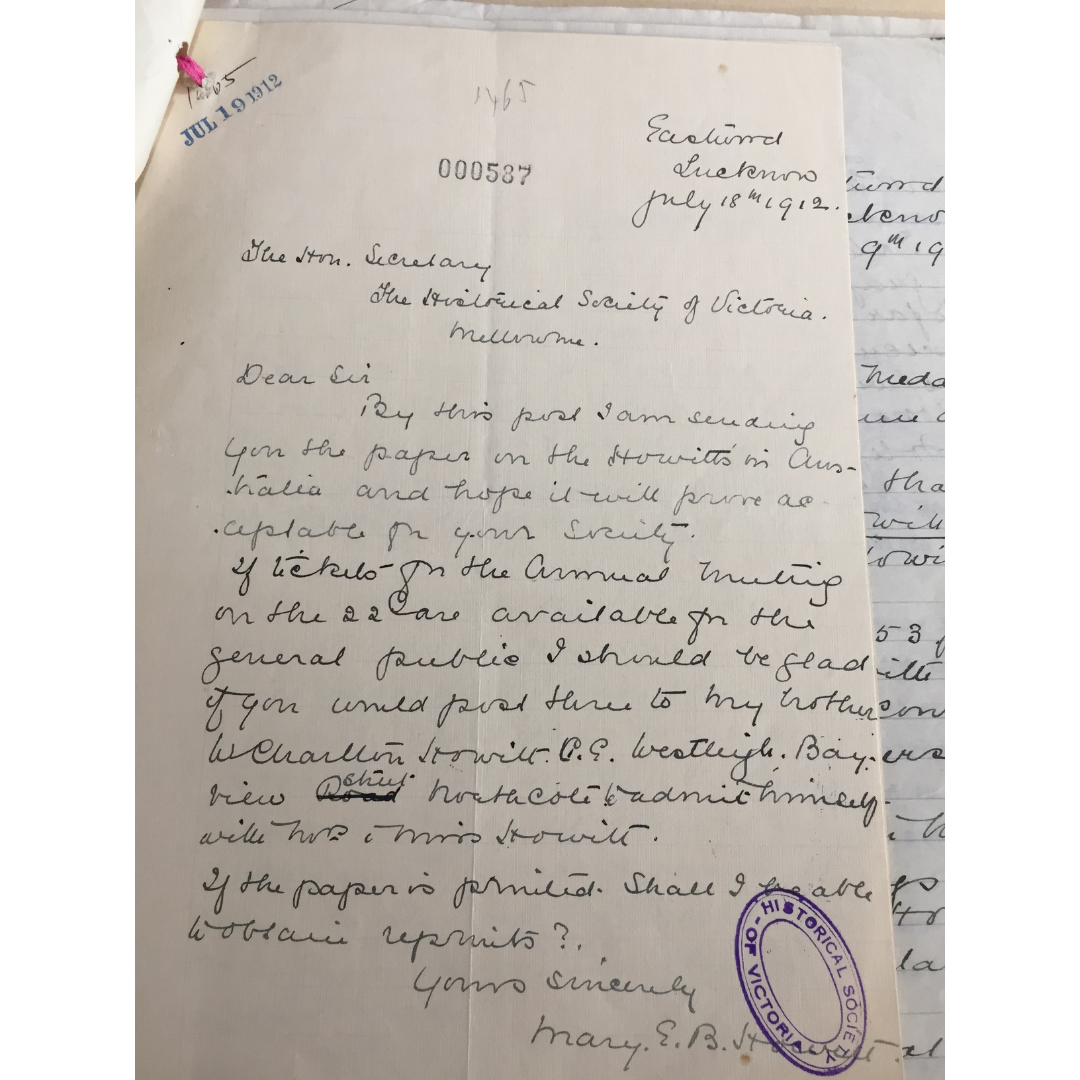 1465
JUL 19 1912
1465
000587
Eastwood
Lucknow
July 18th 1912.
The Hon. Secretary
The Historical Society of Victoria.
Melbourne.
Dear Sir
By this post I am sending
you the paper on the Howitts in Aus-
tralia and hope it will prove ac-
ceptable for your Society.
If tickets for the Annual Meeting
on the 22d are available for the
general public I should be glad
if you would post three to my brother
W Charlton Howitt. C.E. Westleigh. Bay-
view Road Street Northcote to admit himself
with Mrs & Miss Howitt.
If the paper is printed. Shall I be able
to obtain reprints?.
Yours Sincerely
Mary. E. B. Howitt.
HISTORICAL SOCIETY OF VICTORIA
9th 19
Meda
tha
will
53
la